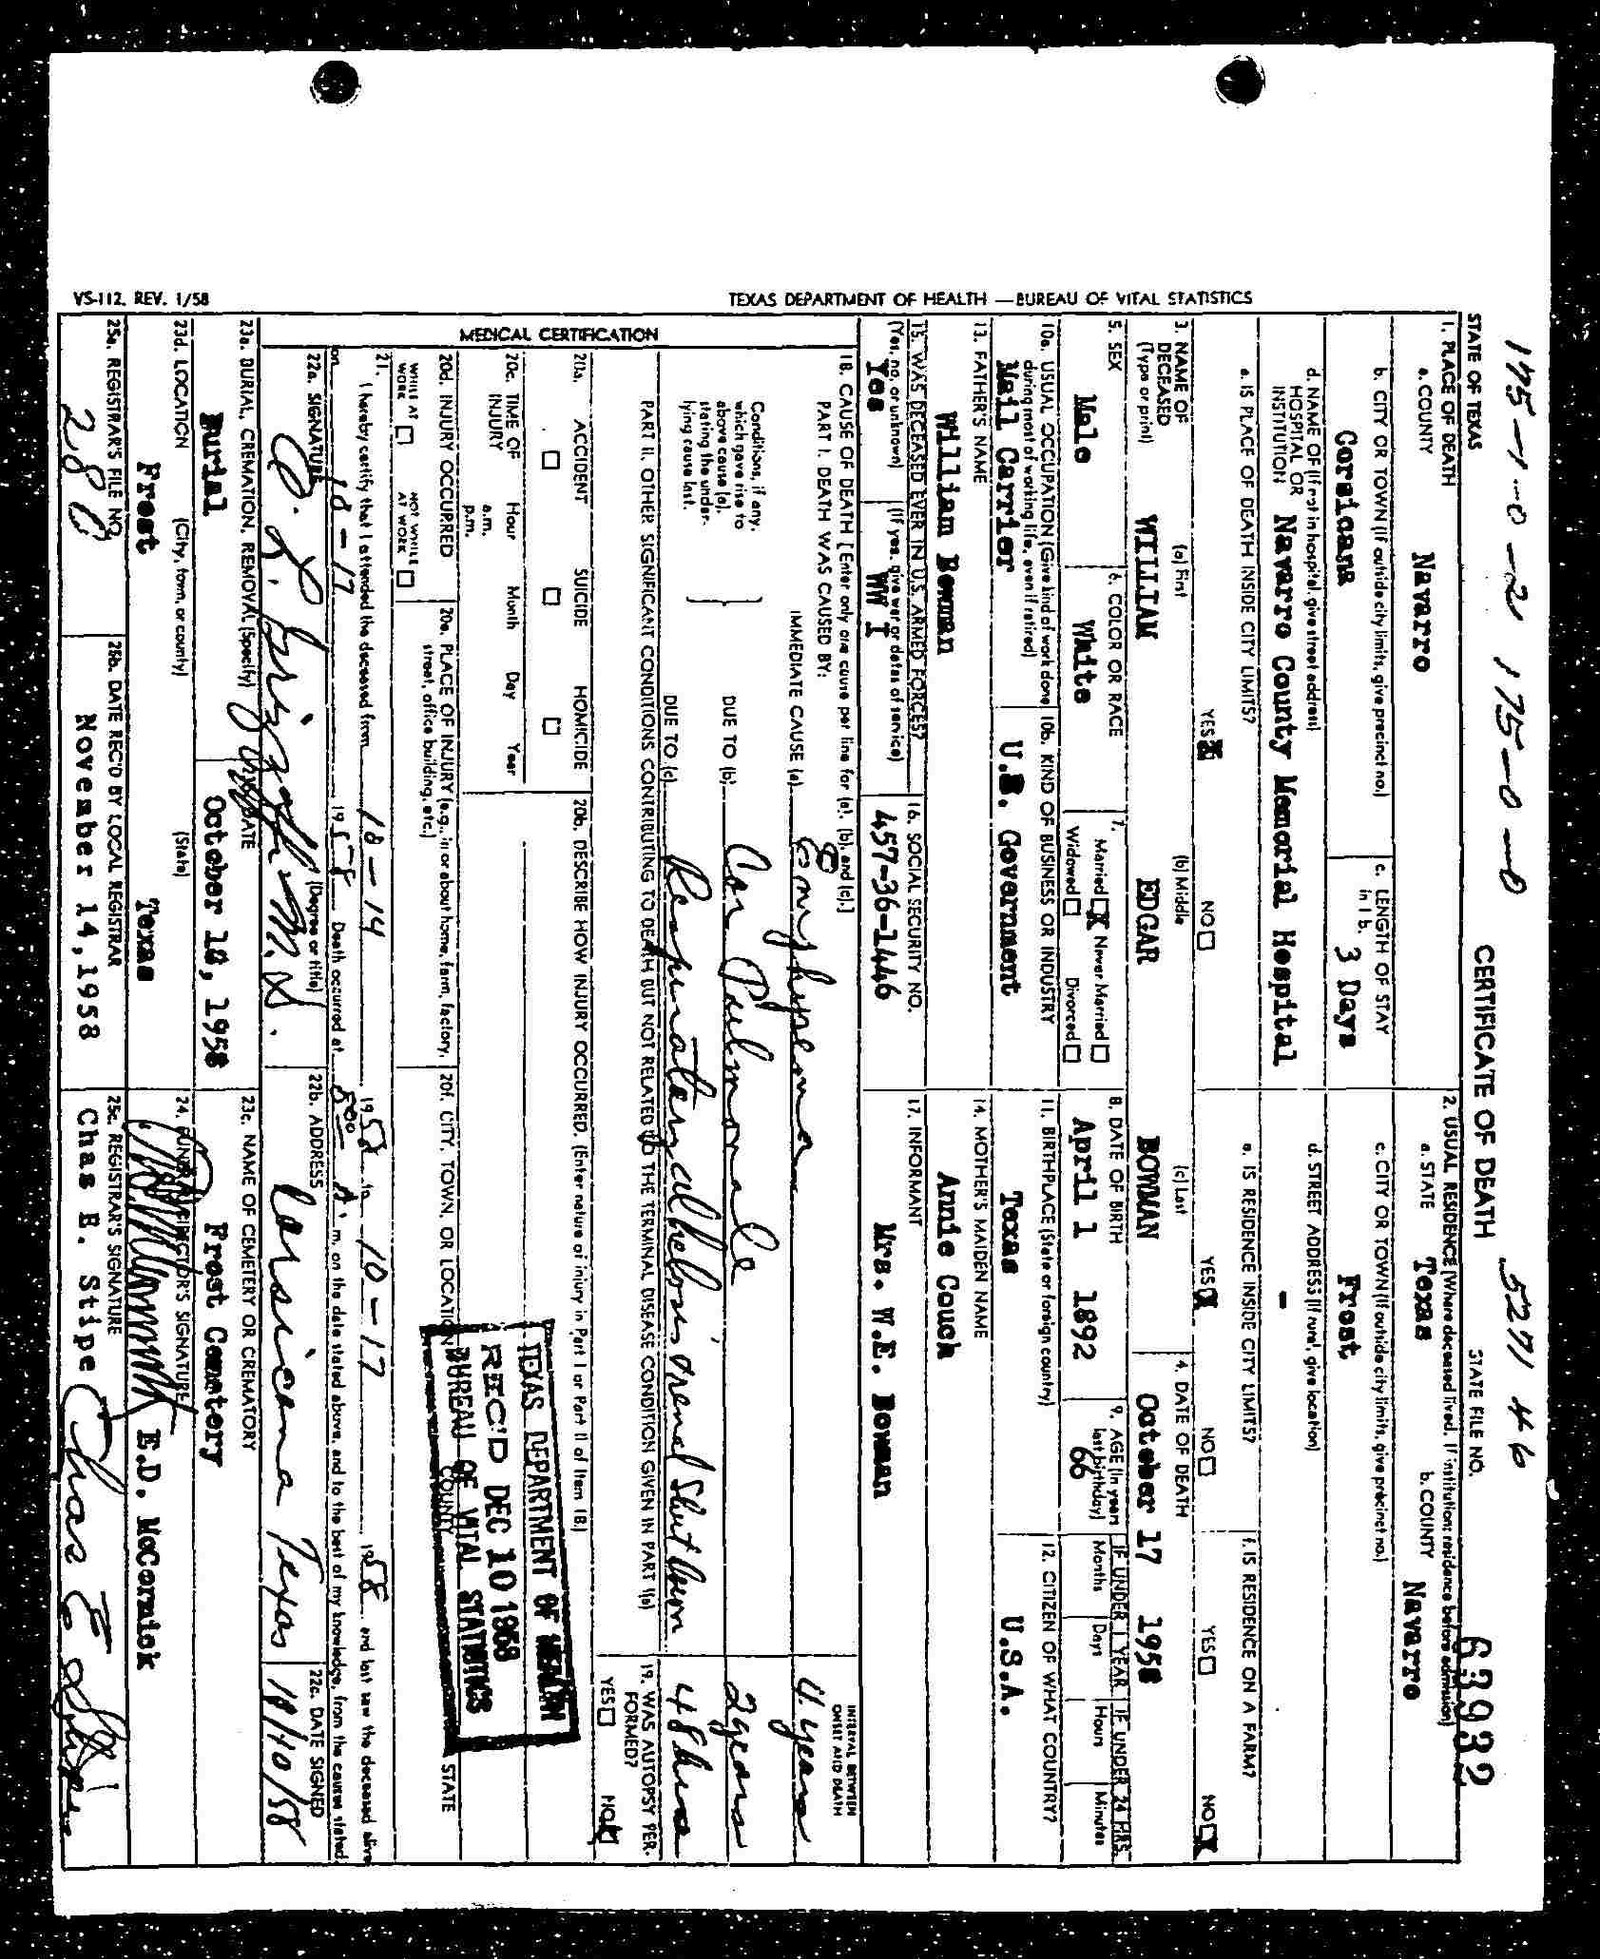 175-1-0-2 175-0-0 5271 46
STATE OF TEXAS
CERTIFICATE OF DEATH
STATE FILE NO.
63932
1. PLACE OF DEATH
a. COUNTY
Navarro
2. USUAL RESIDENCE (Where deceased lived. If institution: residence before admission)
a. STATE
Texas
b. COUNTY
Navarro
b. CITY OR TOWN (If outside city limits, give precinct no.)
Corsicana
c. LENGTH OF STAY in 1 b.
3 Days
c. CITY OR TOWN (If outside city limits, give precinct no.)
Frost
d. NAME OF (If not in hospital, give street address)
HOSPITAL OR
INSTITUTION
Navarro County Memorial Hospital
d. STREET ADDRESS (If rural, give location)
-
e. IS PLACE OF DEATH INSIDE CITY LIMITS?
YES X NO
e. IS RESIDENCE INSIDE CITY LIMITS?
YES X NO
f. IS RESIDENCE ON A FARM?
YES NO X
3. NAME OF
DECEASED
(Type or print)
(a) First
WILLIAM
(b) Middle
EDGAR
(c) Last
BOWMAN
4. DATE OF DEATH
October 17 1958
5. SEX
Male
6. COLOR OR RACE
White
7.
Married X Never Married
Widowed Divorced
8. DATE OF BIRTH
April 1 1892
9. AGE (In years last birthday)
66
IF UNDER 1 YEAR
Months Days
IF UNDER 24 HRS.
Hours Minutes
10a. USUAL OCCUPATION (Give kind of work done
during most of working life, even if retired)
Mail Carrier
10b. KIND OF BUSINESS OR INDUSTRY
U.S. Government
11. BIRTHPLACE (State or foreign country)
Texas
12. CITIZEN OF WHAT COUNTRY?
U.S.A.
13. FATHER'S NAME
William Bowman
14. MOTHER'S MAIDEN NAME
Annie Couch
15. WAS DECEASED EVER IN U.S. ARMED FORCES?
(Yes, no, or unknown) (If yes, give war or dates of service)
Yes WW I
16. SOCIAL SECURITY NO.
457-36-1446
17. INFORMANT
Mrs. W.E. Bowman
MEDICAL CERTIFICATION
18. CAUSE OF DEATH [Enter only one cause per line for (a), (b), and (c).]
PART I. DEATH WAS CAUSED BY:
INTERVAL BETWEEN
ONSET AND DEATH
IMMEDIATE CAUSE (a)
Emphysema
4 years
Conditions, if any,
which gave rise to
above cause (a),
stating the under-
lying cause last.
DUE TO (b)
Cor Pulmonale
2 years
DUE TO (c)
Respiratory alkalosis & renal Shut Down
48 hrs
PART II. OTHER SIGNIFICANT CONDITIONS CONTRIBUTING TO DEATH BUT NOT RELATED TO THE TERMINAL DISEASE CONDITION GIVEN IN PART I(a)
19. WAS AUTOPSY PER-
FORMED?
YES NO X
20a. ACCIDENT SUICIDE HOMICIDE
20b. DESCRIBE HOW INJURY OCCURRED. (Enter nature of injury in Part I or Part II of Item 18.)
20c. TIME OF
INJURY
Hour Month Day Year
a.m.
p.m.
TEXAS DEPARTMENT OF HEALTH
REC'D DEC 10 1958
BUREAU OF VITAL STATISTICS
20d. INJURY OCCURRED
WHILE AT
WORK
NOT WHILE
AT WORK
20e. PLACE OF INJURY (e.g., in or about home, farm, factory,
street, office building, etc.)
20f. CITY, TOWN, OR LOCATION
COUNTY
STATE
21.
I hereby certify that I attended the deceased from 10-14 1958 to 10-17 1958 and last saw the deceased alive
on 10-17 1958 Death occurred at 5:00 A. m. on the date stated above, and to the best of my knowledge, from the causes stated.
22a. SIGNATURE
(Degree or title)
M.D.
22b. ADDRESS
Corsicana Texas
22c. DATE SIGNED
23a. BURIAL, CREMATION, REMOVAL (Specify)
Burial
23b. DATE
October 18, 1958
23c. NAME OF CEMETERY OR CREMATORY
Frost Cemetery
23d. LOCATION (City, town, or county) (State)
Frost Texas
24. FUNERAL DIRECTOR'S SIGNATURE
E.D. McCormick
25a. REGISTRAR'S FILE NO.
280
25b. DATE REC'D BY LOCAL REGISTRAR
November 14, 1958
25c. REGISTRAR'S SIGNATURE
Chas E. Stipe
VS-112, REV. 1/58
TEXAS DEPARTMENT OF HEALTH — BUREAU OF VITAL STATISTICS